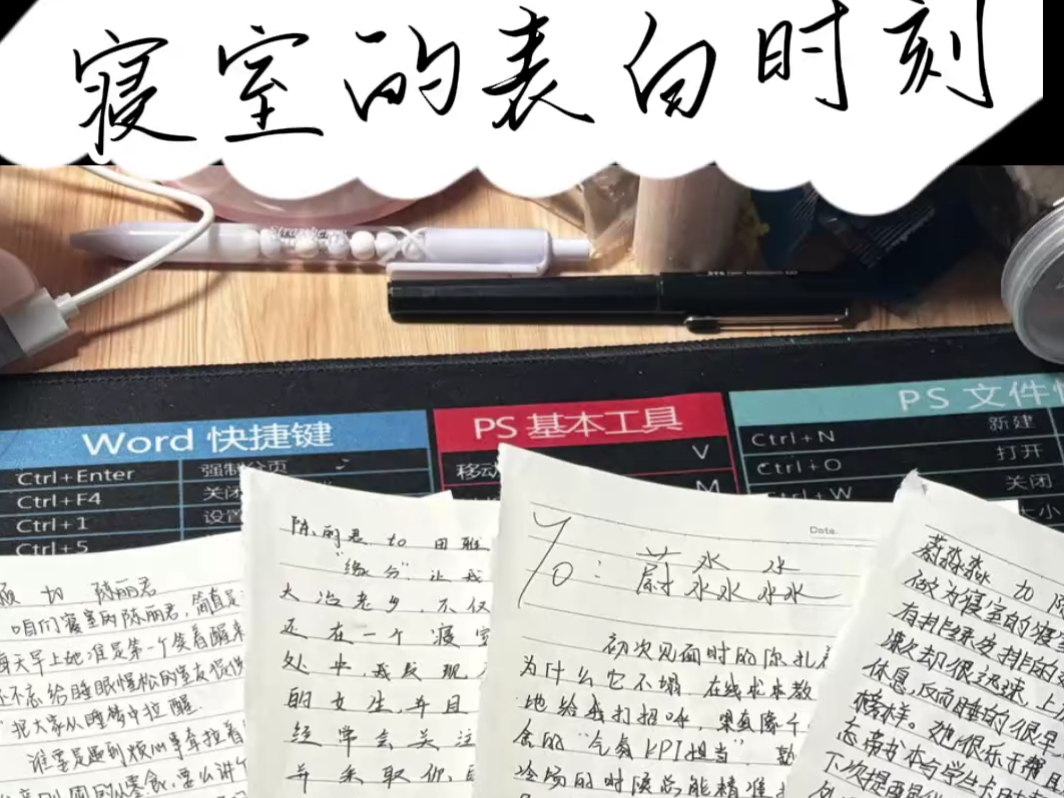 寝室的表白时刻
Word 快捷键
Ctrl+Enter 强制分页
Ctrl+F4 关闭
Ctrl+1 设置
Ctrl+5
PS 基本工具
移动 V
M
PS 文件
Ctrl+N 新建
Ctrl+O 打开
Ctrl+W 关闭
大小
to 陈丽君
咱们寝室的陈丽君,简直是
每天早上她准是第一个笑着醒来
还不忘给睡眼惺忪的室友
把大家从睡梦中拉醒.
谁要是遇到烦心事
陈丽君 to 田雅
“缘分”让我
大冶老乡,不仅
还在一个寝室
处中,我发现
的女生,并且
经常会关注
并采取
Date.
To: 蔚淼淼
初次见面时的你扎
为什么它不塌.在线求本教
地给我打招呼,
余的“气氛KPI担当”.
冷场的时候总能精准
蔚淼淼 to 陈
做为寝室的寝
速次却很迅速.上
休息,反而睡的很早
榜样。她很乐于帮
志带书本与学生卡
下次提更是